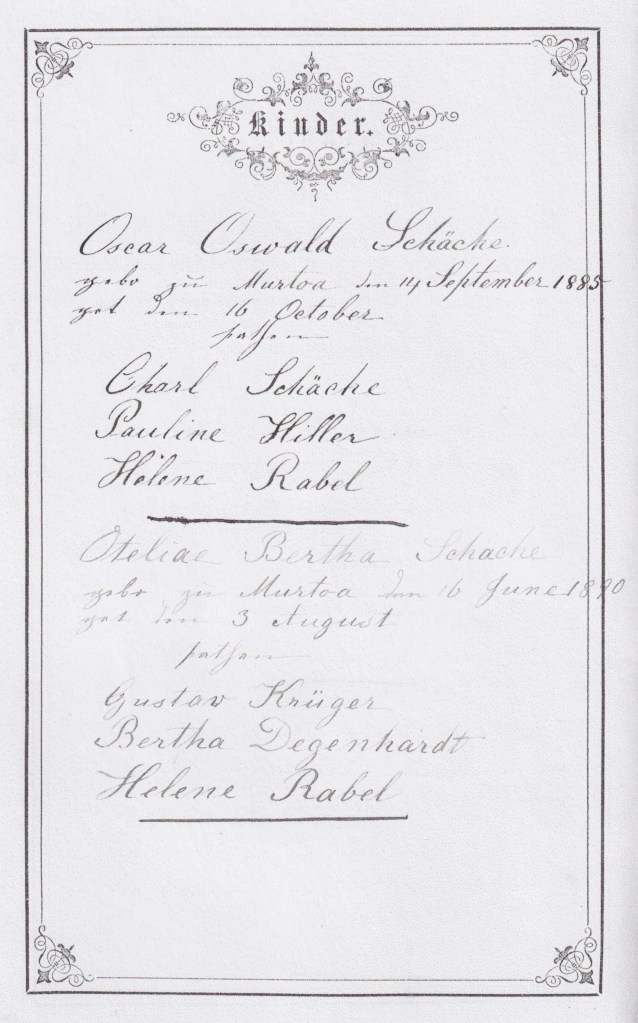 Kinder.
Oscar Oswald Schäche.
gebo zu Murtoa den 14 September 1885
get den 16 October
pathen
Charl Schäche
Pauline Hiller
Helene Rabel
Oteliae Bertha Schache
gebo zu Murtoa den 16 June 1890
get den 3 August
pathen
Gustav Krüger
Bertha Degenhardt
Helene Rabel